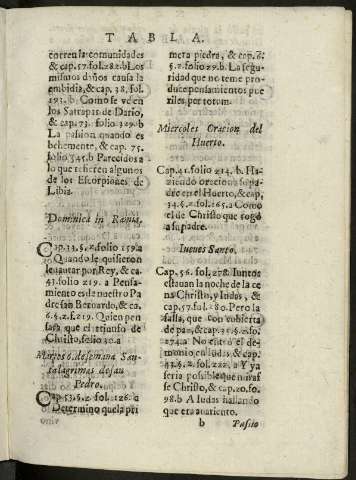 TABLA.
corren las comunidades
& cap. 57. fol. 282. b Los
mismos daños causa la
embidia, & cap. 38. fol.
193. b. Como se vè en
los Satrapas de Dario,
& cap. 73. folio 329. b
La passion quando es
vehemente, & cap. 75.
folio 345. b Parecidos a
lo que refieren algunos
de los Escorpiones de
Libia.
Dominica in Ramis.
Cap. 13. §. 2. folio 159. a
Quando le quisieron
leuantar por Rey, & ca.
43. folio 219. a Pensa-
miento es de nuestro Pa
dre san Bernardo, & ca.
6. §. 2. f. 219. Quien pen
sara que el triunfo de
Christo, folio 30. a
Martes 6. de semana San-
ta lagrimas de san
Pedro.
Cap. 53. §. 2. fol. 126. a
Determino que la pri
mera piedra, & cap. 6.
§. 2. folio 29. b. La segu-
ridad que no teme pro-
duce pensamientos pue
riles, per totum.
Miercoles Oracion del
Huerto.
Cap. 41. folio 214. b. Ha-
ziendo oracion a su pa-
dre en el Huerto, & cap.
34. §. 2. fol. 165. a Como
el de Christo que rogò
a su padre.
Iueues Santo.
Cap. 56. fol. 278. Iuntos
estauan la noche de la ce
na Christo, y Iudas, & c
57. fol. 280. Pero la
falsa, que con cubierta
de paz, & cap. 35. §. 2. fo.
274. a No entrò el de-
monio en Iudas, & cap.
43. §. 2. fol. 222. a Y ya
seria possible que negas
se Christo, & cap. 20. fo.
98. b A Iudas hallando
que era auariento.
b Passio